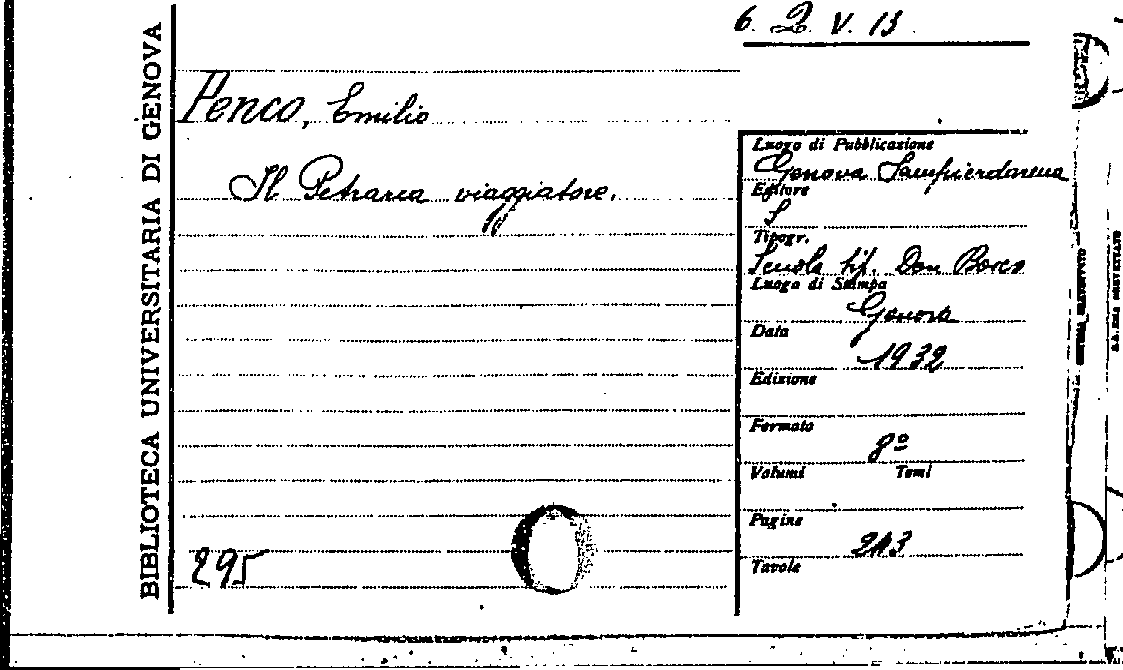 6. 2. V. 13.
BIBLIOTECA UNIVERSITARIA DI GENOVA
Penco, Emilio
Il Petrarca viaggiatore.
295
Luogo di Pubblicazione
Genova Sampierdarena
Editore
S
Tipogr.
Scuola tip. Don Bosco
Luogo di Stampa
Genova
Data
1932
Edizione
Formato
8º
Volumi Tomi
Pagine
213
Tavole